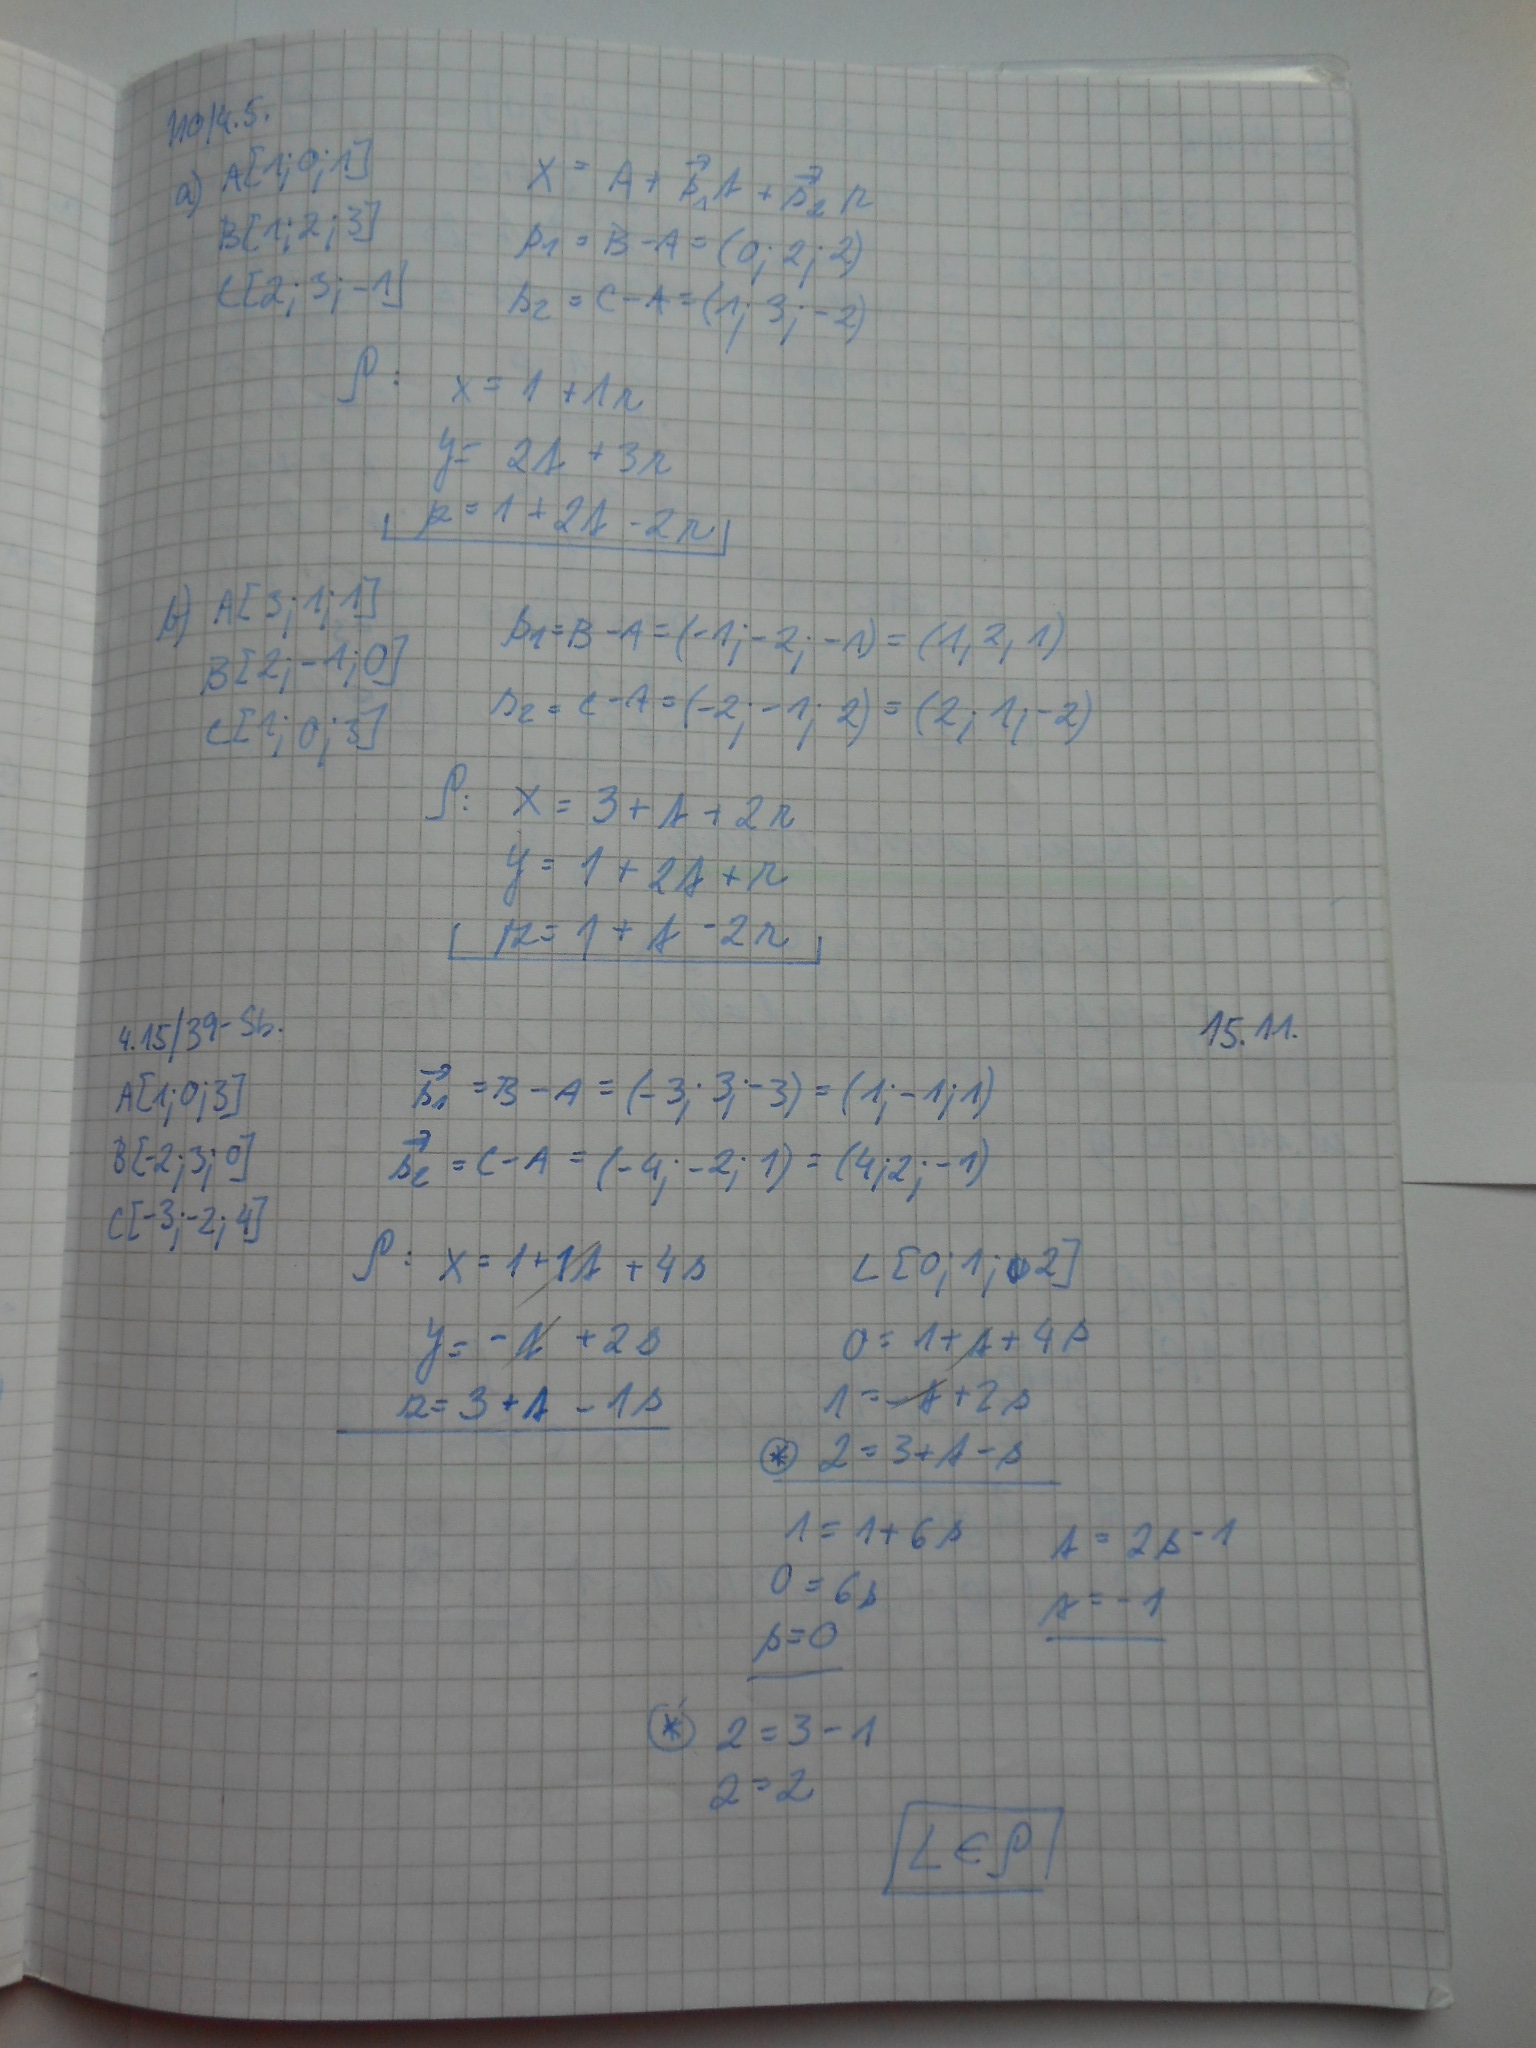 110/4.5.
a) A[1;0;1] X = A + s⃗₁t + s⃗₂r
B[1;2;3] s₁ = B - A = (0; 2; 2)
C[2;3;-1] s₂ = C - A = (1; 3; -2)
ρ: x = 1 + 1r
y = 2t + 3r
z = 1 + 2t - 2r
b) A[3;1;1] s₁ = B - A = (-1; -2; -1) = (1, 2, 1)
B[2;-1;0] s₂ = C - A = (-2; -1; 2) = (2; 1; -2)
C[1;0;3]
ρ: x = 3 + t + 2r
y = 1 + 2t + r
z = 1 + t - 2r
4.15/39-Sb. 15.11.
A[1;0;3] s⃗₁ = B - A = (-3; 3; -3) = (1; -1; 1)
B[-2;3;0] s⃗₂ = C - A = (-4; -2; 1) = (4; 2; -1)
C[-3;-2;4]
ρ: x = 1 + 1t + 4s L[0; 1; 2]
y = -t + 2s 0 = 1 + t + 4s
z = 3 + t - 1s 1 = -t + 2s
* 2 = 3 + t - s
1 = 1 + 6s t = 2s - 1
0 = 6s t = -1
s = 0
* 2 = 3 - 1
2 = 2
L ∈ ρ